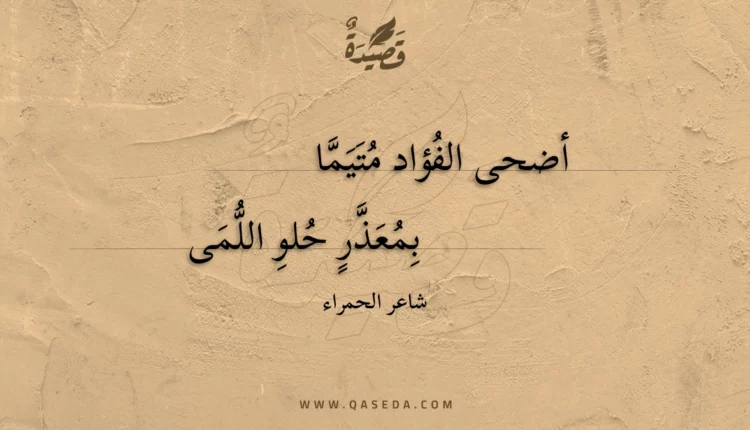 قَصِيْدَةٌ
أضحى الفُؤاد مُتَيَمَّا
بِمُعَذَّرٍ حُلوِ اللُّمَى
شاعر الحمراء
WWW.QASEDA.COM